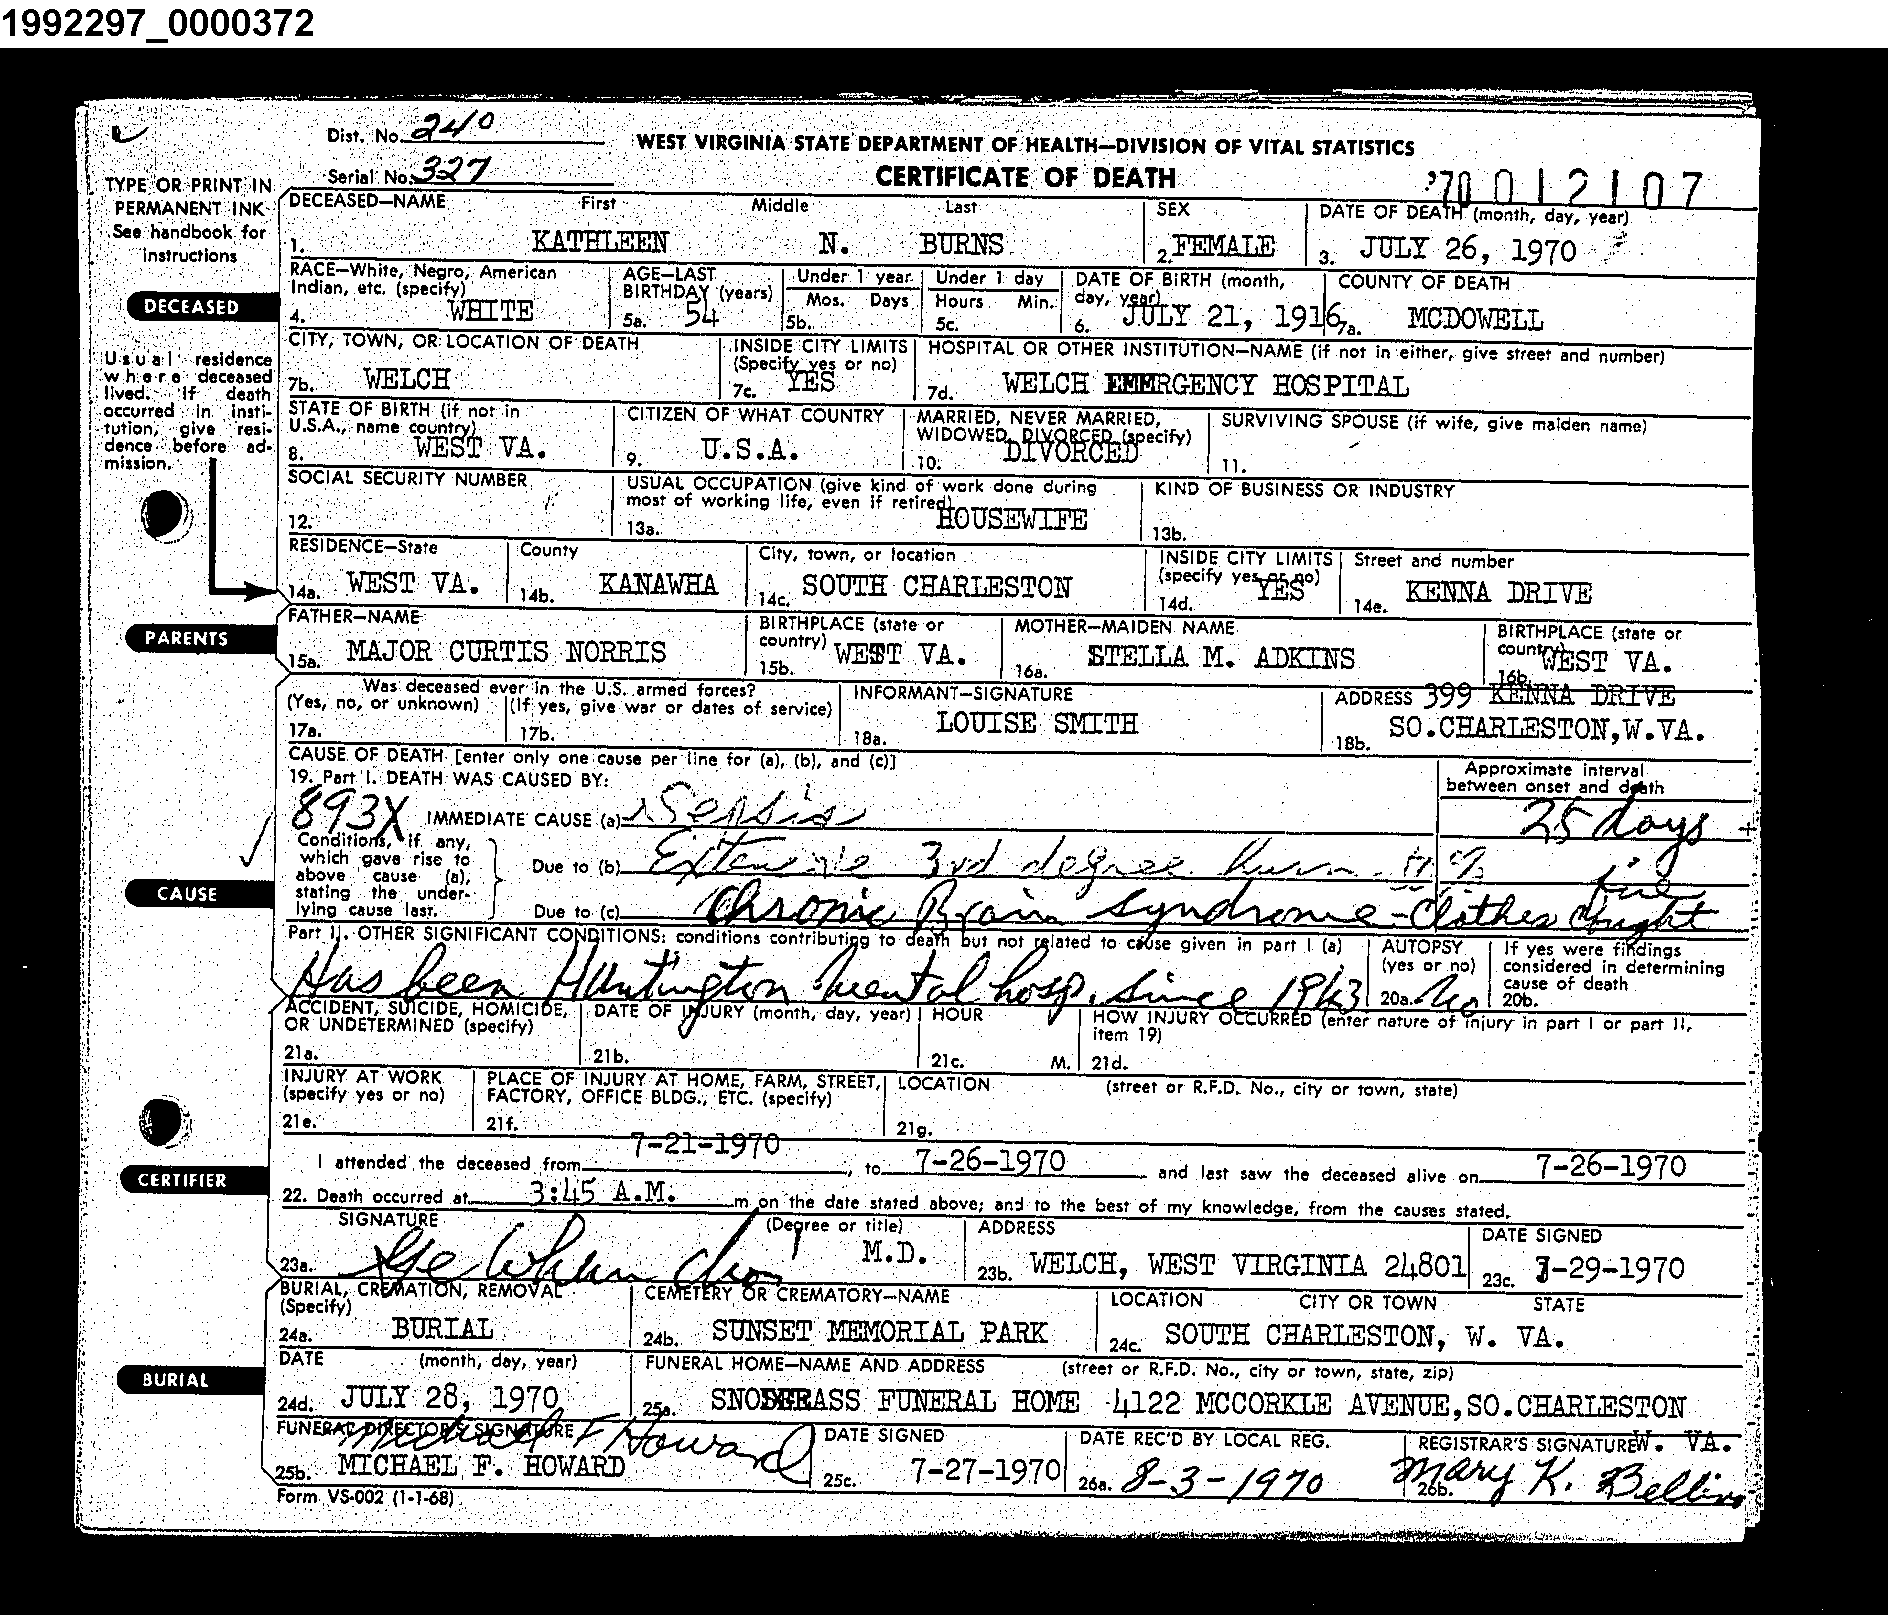 1992297_0000372
Dist. No. 240
WEST VIRGINIA STATE DEPARTMENT OF HEALTH—DIVISION OF VITAL STATISTICS
Serial No. 327
CERTIFICATE OF DEATH
'70 012107
TYPE OR PRINT IN
PERMANENT INK
See handbook for
instructions
DECEASED—NAME First Middle Last
1. KATHLEEN N. BURNS
SEX
2. FEMALE
DATE OF DEATH (month, day, year)
3. JULY 26, 1970
DECEASED
RACE—White, Negro, American
Indian, etc. (specify)
4. WHITE
AGE—LAST
BIRTHDAY (years)
5a. 54
Under 1 year
Mos. Days
5b.
Under 1 day
Hours Min.
5c.
DATE OF BIRTH (month,
day, year)
6. JULY 21, 1916
COUNTY OF DEATH
7a. MCDOWELL
Usual residence
where deceased
lived. If death
occurred in insti-
tution, give resi-
dence before ad-
mission.
CITY, TOWN, OR LOCATION OF DEATH
7b. WELCH
INSIDE CITY LIMITS
(Specify yes or no)
7c. YES
HOSPITAL OR OTHER INSTITUTION—NAME (if not in either, give street and number)
7d. WELCH EMERGENCY HOSPITAL
STATE OF BIRTH (if not in
U.S.A., name country)
8. WEST VA.
CITIZEN OF WHAT COUNTRY
9. U.S.A.
MARRIED, NEVER MARRIED,
WIDOWED, DIVORCED (specify)
10. DIVORCED
SURVIVING SPOUSE (if wife, give maiden name)
11.
SOCIAL SECURITY NUMBER
12.
USUAL OCCUPATION (give kind of work done during
most of working life, even if retired)
13a. HOUSEWIFE
KIND OF BUSINESS OR INDUSTRY
13b.
RESIDENCE—State
14a. WEST VA.
County
14b. KANAWHA
City, town, or location
14c. SOUTH CHARLESTON
INSIDE CITY LIMITS
(specify yes or no)
14d. YES
Street and number
14e. KENNA DRIVE
PARENTS
FATHER—NAME
15a. MAJOR CURTIS NORRIS
BIRTHPLACE (state or
country)
15b. WEST VA.
MOTHER—MAIDEN NAME
16a. STELLA M. ADKINS
BIRTHPLACE (state or
country)
16b. WEST VA.
Was deceased ever in the U.S. armed forces?
(Yes, no, or unknown) (If yes, give war or dates of service)
17a. 17b.
INFORMANT—SIGNATURE
18a. LOUISE SMITH
ADDRESS 399 KENNA DRIVE
18b. SO.CHARLESTON,W.VA.
CAUSE OF DEATH [enter only one cause per line for (a), (b), and (c)]
19. Part I. DEATH WAS CAUSED BY:
Approximate interval
between onset and death
893X IMMEDIATE CAUSE (a) Sepsis 25 days +
CAUSE
Conditions, if any,
which gave rise to
above cause (a),
stating the under-
lying cause last.
Due to (b) Extensive 3rd degree burn %
Due to (c) Chronic Brain Syndrome - Clothes caught fire
Part II. OTHER SIGNIFICANT CONDITIONS: conditions contributing to death but not related to cause given in part I (a)
Has been Huntington mental hosp. since 1963
AUTOPSY
(yes or no)
20a. No
If yes were findings
considered in determining
cause of death
20b.
ACCIDENT, SUICIDE, HOMICIDE,
OR UNDETERMINED (specify)
21a.
DATE OF INJURY (month, day, year)
21b.
HOUR
21c. M.
HOW INJURY OCCURRED (enter nature of injury in part I or part II,
item 19)
21d.
INJURY AT WORK
(specify yes or no)
21e.
PLACE OF INJURY AT HOME, FARM, STREET,
FACTORY, OFFICE BLDG., ETC. (specify)
21f.
LOCATION (street or R.F.D. No., city or town, state)
21g.
CERTIFIER
I attended the deceased from 7-21-1970, to 7-26-1970 and last saw the deceased alive on 7-26-1970
22. Death occurred at 3:45 A.M. m on the date stated above; and to the best of my knowledge, from the causes stated.
SIGNATURE (Degree or title)
23a. M.D.
ADDRESS
23b. WELCH, WEST VIRGINIA 24801
DATE SIGNED
23c. 7-29-1970
BURIAL, CREMATION, REMOVAL
(Specify)
24a. BURIAL
CEMETERY OR CREMATORY—NAME
24b. SUNSET MEMORIAL PARK
LOCATION CITY OR TOWN STATE
24c. SOUTH CHARLESTON, W. VA.
BURIAL
DATE (month, day, year)
24d. JULY 28, 1970
FUNERAL HOME—NAME AND ADDRESS (street or R.F.D. No., city or town, state, zip)
25a. SNODGRASS FUNERAL HOME 4122 MCCORKLE AVENUE,SO.CHARLESTON
W. VA.
FUNERAL DIRECTOR'S SIGNATURE
Michael F Howard
25b. MICHAEL F. HOWARD
DATE SIGNED
25c. 7-27-1970
DATE REC'D BY LOCAL REG.
26a. 8-3-1970
REGISTRAR'S SIGNATURE
26b. Mary K.
Form VS-002 (1-1-68)